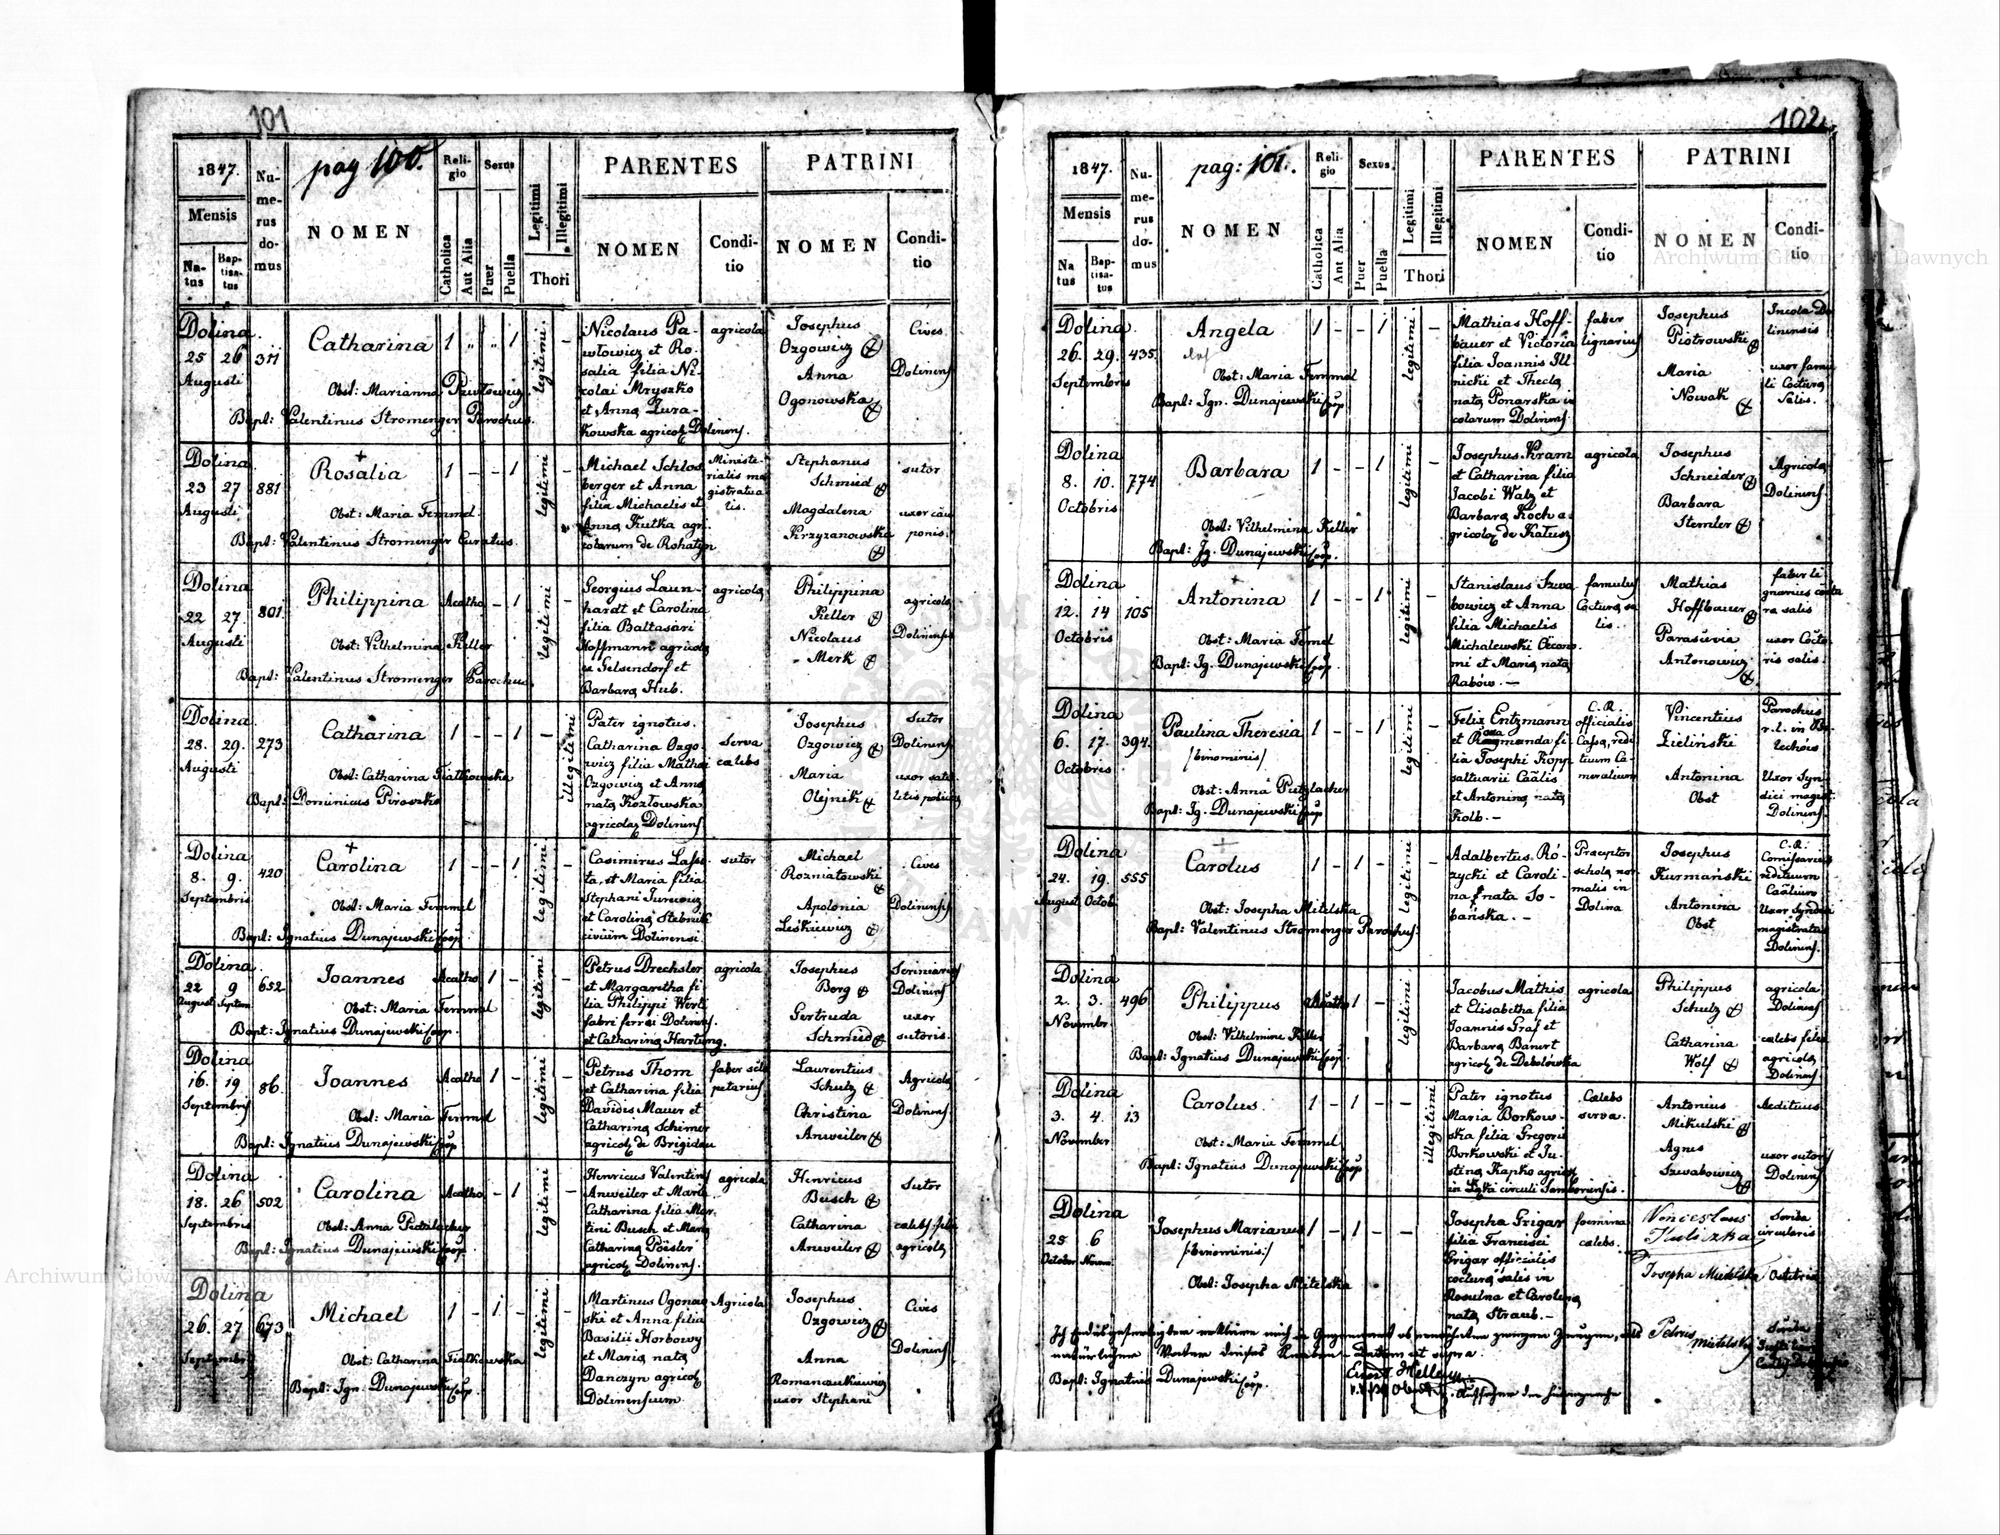 101
1847.
Mensis
Na-
tus
Bap-
tisa-
tus
Nu-
me-
rus
do-
mus
pag 100.
NOMEN
Reli-
gio
Catholica
Aut Alia
Sexus
Puer
Puella
Legitimi
Illegitimi
Thori
PARENTES
NOMEN
Condi-
tio
PATRINI
NOMEN
Condi-
tio
Dolina
25 26 311
Augusti
Catharina 1 " " 1 legitimi –
Obst: Marianna Pawłowicz
Bapl: Valentinus Stromenger Parochus.
Nicolaus Pa-
włowicz et Ro-
salia filia Ni-
colai Mryszko
et Anna Zura-
kowska agricol Dolinens.
agricola
Josephus
Ozgowicz
Anna
Ogonowska
Cives
Dolinens
Dolina
23 27 881
Augusti
Rosalia 1 - - 1 legitimi –
Obst: Maria Femmel.
Bapl: Valentinus Stromenger Curatus.
Michael Schlos
berger et Anna
filia Michaelis et
Anna Kutka agri
colarum de Rohatyn
Ministe-
rialis ma
gistratua
lis.
Stephanus
Schmied
Magdalena
Krzyzanowska
sutor
uxor cau
ponis.
Dolina
22 27 801
Augusti
Philippina Acatho - 1 legitimi –
Obst: Vilhelmina Keller
Bapl: Valentinus Stromenger Parochus.
Georgius Laun-
hardt et Carolina
filia Baltasari
Hoffmann agricol
ex Gelsendorf et
Barbara Hub.
agricola
Philippina
Keller
Nicolaus
Merk
agricola
Dolinensis
Dolina
28. 29. 273
Augusti
Catharina 1 - 1 - illegitimi
Obst: Catharina Fiatkowska
Bapl: Dominicus Pirozko
Pater ignotus.
Catharina Ozgo-
wicz filia Mathei
Ozgowicz et Anna
nata Kozłowska
agricola Dolinens
serva
calebs
Josephus
Ozgowicz
Maria
Olejnik
Sutor
Dolinens
uxor sate
litis
Dolina
8. 9. 420
Septembris
Carolina 1 - - 1 legitimi –
Obst: Maria Femmel
Bapl: Ignatius Dunajewski Coop
Casimirus Lass
ta et Maria filia
Stephani Jurewicz
et Carolina Stebnik
civium Dolinensi.
sutor
Michael
Rozniatowski
Apolonia
Leskiewicz
Cives
Dolinensis
Dolina
22 9 652
August Septem
Joannes Acatho 1 - legitimi –
Obst: Maria Femmel
Bapt: Ignatius Dunajewski Coop.
Petrus Drechsler
et Margaretha fi
lia Philippi Werle
fabri ferrei Dolinens.
et Catharina Hartung.
agricola
Josephus
Berg
Gertruda
Schmied
Scriniarius
Dolinens
uxor
sutoris.
Dolina
16. 19 86.
Septembris
Joannes Acatho 1 - legitimi –
Obst: Maria Femmel
Bapl: Ignatius Dunajewski Coop
Petrus Thom
et Catharina filia
Davidis Mauer et
Catharina Schirmer
agricol de Brigidau
faber
Laurentius
Schutz
Christina
Anweiler
Agricola
Dolinens
Dolina
18. 26 502
Septembris
Carolina Acatho - 1 legitimi –
Obst: Anna Pietzlacher
Bapl: Ignatius Dunajewski Coop
Henricus Valentin
Anweiler et Maria
Catharina filia Mar-
tini Busch et Maria
Catharina Pöesler
agricol Dolinens.
agricola
Henricus
Busch
Catharina
Anweiler
Sutor
calebs filia
agricola
Dolina
26. 27 673
Septembris
Michael 1 - 1 - legitimi –
Obst: Catharina Fiatkowska
Bapl: Ign. Dunajewski Coop.
Martinus Ogonow
ski et Anna filia
Basilii Horbowy
et Maria nata
Danczyn agricol
Dolinensium
Agricola
Josephus
Ozgowicz
Anna
Romanczukiewicz
uxor Stephani
Cives
Dolinens
102.
1847.
Mensis
Na
tus
Bap-
tisa-
tus
Nu-
me-
rus
do-
mus
pag: 101.
NOMEN
Reli-
gio
Catholica
Ant Alia
Sexus.
Puer
Puella
Legitimi
Illegitimi
Thori
PARENTES
NOMEN
Condi-
tio
PATRINI
NOMEN
Condi-
tio
Dolina.
26. 29. 435.
Septembris
Angela 1 - - 1 legitimi –
Obst: Maria Femmel
Bapl: Ign. Dunajewski Coop
Mathias Hoff-
bauer et Victoria
filia Joannis Ill
nicki et Thecla
nata Ponarska in
colarum Dolinens
faber
lignarius
Josephus
Piotrowski
Maria
Nowak
Incola Do
linensis
uxor famu
li Coctura
Salis.
Dolina
8. 10. 774
Octobris
Barbara 1 - - 1 legitimi –
Obst: Vilhelmina Keller
Bapl: Ig. Dunajewski Coop.
Josephus Kram
et Catharina filia
Jacobi Walz et
Barbara Koch a-
gricol de Kałusz
agricola
Josephus
Schneider
Barbara
Stemler
Agricola
Dolinens
Dolina
12. 14 105
Octobris
Antonina 1 - - 1 legitimi –
Obst: Maria Femel
Bapl: Ig. Dunajewski Coop
Stanislaus Szwa
bowicz et Anna
filia Michaelis
Michalewski Œcono
mi et Maria nata
Rabów. –
famulus
Coctura sa
lis.
Mathias
Hoffbauer
Parasievia
Antonowicz
faber li
gnarius coctu
ra salis
uxor Cocto
ris salis.
Dolina
6. 17. 394.
Octobris
Paulina Theresia 1 - - 1 legitimi –
/binominis/
Obst: Anna Pietzlacher
Bapl: Ig. Dunajewski Coop
Felix Entzmann
et Rosamunda fi
lia Josephi Kopp
saltuarii Caälis
et Antonina nata
Kolb. –
C. R.
officialis
Cassa, redi
tuum Ca-
meralium
Vincentius
Zieliński
Antonina
Obst
Parochus
r. l. in Bo
lechów
Uxor Syn-
dici magist.
Dolinens
Dolina
24. 19. 555
August Octob.
Carolus 1 - 1 - legitimi –
Obst: Josepha Mitelska
Bapl: Valentinus Stromenger Parochus
Adalbertus Ró-
zycki et Caroli-
na nata So-
bańska. –
Præceptor
schola nor
malis in
Dolina
Josephus
Kurmański
Antonina
Obst
C. R.
Comissarius
redituum
Caälium
Uxor Syndici
magistratus
Dolinens.
Dolina
2. 3. 496
Novembr.
Philippus Acatho 1 - legitimi
Obst: Vilhelmine Keller
Bapl: Ignatius Dunajewski Coop.
Jacobus Mathis
et Elisabetha filia
Joannis Graf et
Barbara Banert
agricol de Debelówka
agricola
Philippus
Schulz
Catharina
Wolf
agricola
Dolinens
calebs filia
agricola
Dolinens
Dolina
3. 4. 13
November
Carolus. 1 - 1 - - illegitimi
Obst: Maria Femmel
Bapl: Ignatius Dunajewski Coop
Pater ignotus
Maria Borkow-
ska filia Gregorii
Borkowski et Ju-
stina Kapko agricol
in Łąka circuli Samboriensis.
Calebs
serva.
Antonius
Mikulski
Agnes
Szwabowicz
Aedituus
uxor sutoris
Dolinens
Dolina
25 6
October Novem
Josephus Marianus 1 - 1 - –
/:binominis:/
Obst: Josepha Mitelska
Josepha Grigar
filia Francisci
Grigar officialis
coctura salis in
Rosulna et Carolina
nata Straub. –
foemina
calebs.
Venceslaus
Kuliczka
Josepha Mitelska
Petrus
Mitelsky
Scriba
circularis
Ostetrix
Bapl: Ignatius Dunajewski Coop.
Archiwum Główne Akt Dawnych
Archiwum Główne Akt Dawnych